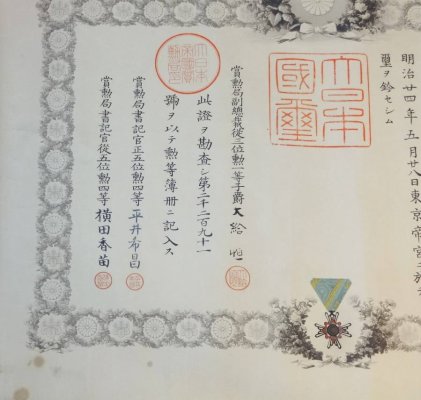 明治廿四年五月廿八日東京帝宮ニ於テ
璽ヲ鈐セシム
大日本國璽
賞勲局副總裁從三位勲一等子爵大給恒
此證ヲ勘査シ第二千二百九十一
號ヲ以テ勲等簿册ニ記入ス
賞勲局書記官正五位勲四等平井希昌
賞勲局書記官從五位勲四等横田香苗